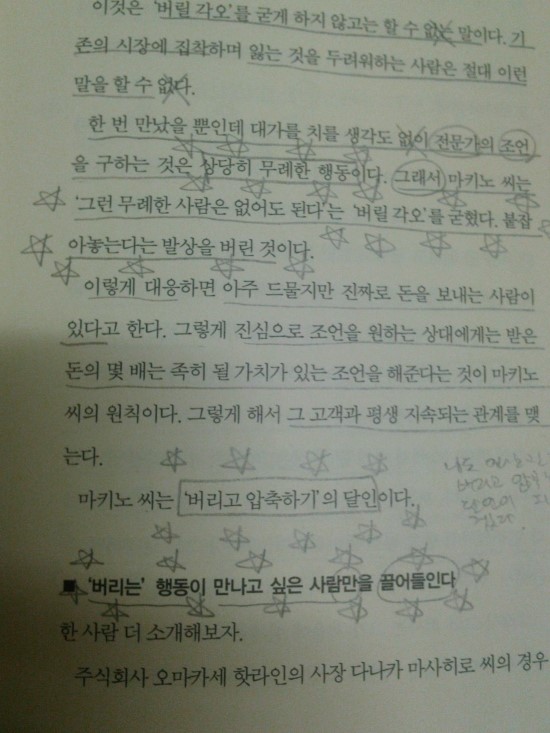 이것은 '버릴 각오'를 굳게 하지 않고는 할 수 없는 말이다. 기
존의 시장에 집착하며 잃는 것을 두려워하는 사람은 절대 이런
말을 할 수 없다.
한 번 만났을 뿐인데 대가를 치를 생각도 없이 전문가의 조언
을 구하는 것은 상당히 무례한 행동이다. 그래서 마키노 씨는
'그런 무례한 사람은 없어도 된다'는 '버릴 각오'를 굳혔다. 붙잡
아놓는다는 발상을 버린 것이다.
이렇게 대응하면 아주 드물지만 진짜로 돈을 보내는 사람이
있다고 한다. 그렇게 진심으로 조언을 원하는 상대에게는 받은
돈의 몇 배는 족히 될 가치가 있는 조언을 해준다는 것이 마키노
씨의 원칙이다. 그렇게 해서 그 고객과 평생 지속되는 관계를 맺
는다.
마키노 씨는 '버리고 압축하기'의 달인이다.
나도
버리고
■ '버리는' 행동이 만나고 싶은 사람만을 끌어들인다
한 사람 더 소개해보자.
주식회사 오마카세 핫라인의 사장 다나카 마사히로 씨의 경우